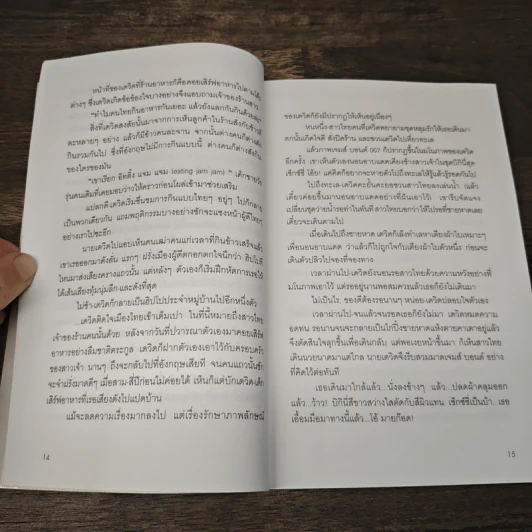 หน้าที่ของเดวิดที่ร้านอาหารก็คือคอยเสิร์ฟอาหารไปตามโต๊ะ
ต่างๆ ซึ่งเดวิดเกิดข้อข้องใจบางอย่างจึงแอบถามเจ้าของร้านสาว
"ทำไมคนไทยกินอาหารกันเยอะ แล้วยังแลกกันกินด้วย
สิ่งที่เดวิดสงสัยนั้นมาจากการเห็นลูกค้าในร้านสั่งกับข้าว
ตะหลายๆ อย่าง แล้วก็มีข้าวคนละจาน จากนั้นต่างคนก็ต่าง
กินรวมกันไป ซึ่งที่อังกฤษไม่มีการกินแบบนี้ ต่างคนก็ต่างสั่ง
ของใครของมัน
"เขาเรียก อีทติ้ง แจม แจม (eating jam jam) " เด็กชาย
รุ่นคนเดิมที่เคยมอบวางให้คราวก่อนโผล่เข้ามาช่วยเสริม
แปลกดีเดวิดเริ่มชื่นชมการกินแบบไทยๆ อยู่ๆ ไปก็กลาย
เป็นพวกเดียวกัน แถมพฤติกรรมบางอย่างชักจะแซงหน้าผู้ดีไทย
อย่างเราไปซะอีก
นายเดวิดไปแอบเห็นคนเฒ่าคนแก่เวลาที่กินข้าวเสร็จแล้ว
เขาเรอออกมาดังลั่น แรกๆ ฝรั่งเมืองผู้ดีตกอกตกใจนึกว่า ฮิปโปที่
ไหนมาส่งเสียงครางแถวนั้น แต่หลังๆ ตัวเองก็เริ่มฝึกหัดการเรอให้
ได้เส้นเสียงทุ้มนุ่มลึกและดังที่สุด
ไม่ช้าเดวิดก็กลายเป็นฮิปโปประจำหมู่บ้านไปอีกหนึ่งตัว
...เดวิดติดใจเมืองไทยเข้าเต็มเปา ในที่นี้หมายถึงสาวไทย
เจ้าของร้านคนนั้นด้วย หลังจากวันที่ปวารณาตัวเองมาคอยเสิร์ฟ
อาหารอย่างลืมชาติตระกูล เดวิดก็ฝากตัวเองเอาไว้กับครอบครัว
ของสาวเจ้า นานๆ ถึงจะกลับไปที่อังกฤษเสียที จนคนแถวนั้นชัก
จะจำฝรั่งมาดดีๆ เมื่อสามสี่ปีก่อนไม่ค่อยได้ เห็นก็แต่บักเดวิดเด็ก
เสิร์ฟอาหารที่เรอเสียงดังไปแปดบ้าน
แม้จะลดความเรื่องมากลงไป แต่เรื่องรักษาภาพลักษณ์
14
ของเดวิดก็ยังมีปรากฏให้เห็นอยู่เนืองๆ
หนหนึ่ง-สาวไทยคนที่เดวิดพยายามขุดหลุมรักให้เธอเดินมา
ตกนั้นเกิดใจดี สั่งปิดร้าน และชวนเดวิดไปเที่ยวทะเล
แล้วภาพเจมส์ บอนด์ 007 ก็ปรากฏขึ้นในมโนภาพของเดวิด
อีกครั้ง เขาเห็นตัวเองนอนอาบแดดเคียงข้างสาวเจ้าในชุดบิกินี่สุด
เซ็กซี่ซี้ โอ้ย! แค่คิดก็อยากจะหายตัวไปถึงทะเลให้รู้แล้วรู้รอดกันไป
ไปถึงทะเล-เดวิดคะยั้นคะยอชวนสาวไทยลงเล่นน้ำ แล้ว
เดี๋ยวค่อยขึ้นมานอนอาบแดดอย่างที่ฝันเอาไว้ เขารีบจัดแจง
เปลี่ยนชุดว่ายน้ำรอท่าในทันที สาวไทยบอกว่าให้ไปรอที่ชายหาดเลย
เดี๋ยวจะเดินตามไป
เมื่อเดินไปถึงชายหาด เดวิดก็เล็งทำเลหาเตียงผ้าใบเหมาะๆ
เพื่อนอนอาบแดด ว่าแล้วก็ไปถูกใจกับเตียงผ้าใบตัวหนึ่ง ก่อนจะ
เดินตัวปลิวไปจองที่จองทาง
เวลาผ่านไป-เดวิดยังนอนรอสาวไทยด้วยความหวังอย่างที่
มโนภาพเอาไว้ แต่รออยู่นานพอสมควรแล้วเธอก็ยังไม่เดินมา
ไม่เป็นไร, ของดีต้องรอนานๆ หน่อย-เดวิดปลอบใจตัวเอง
เวลาผ่านไป-จนแล้วจนรอดเธอก็ยังไม่มา เดวิดหมดความ
อดทน รอนานจนจะกลายเป็นไก่ปิ้งชายหาดแห้งตายคาเตาอยู่แล้ว
จึงตัดสินใจลุกขึ้นเพื่อเดินกลับ แต่พอเงยหน้าขึ้นมา ก็เห็นสาวไทย
เดินนวยนาดมาแต่ไกล นายเดวิดจึงรีบสวมมาดเจมส์ บอนด์ อย่าง
ที่คิดไว้ต่อทันที
เธอเดินมาใกล้แล้ว...นั่งลงข้างๆ แล้ว...ปลดผ้าคลุมออก
แล้ว...ว้าว! บิกินี่สีขาวสว่างใสตัดกับสีผิวแทน เซ็กซี่ซี้เป็นบ้า...เธอ
เอื้อมมือมาทางนี้แล้ว...โอ้ มายก๊อด!
15